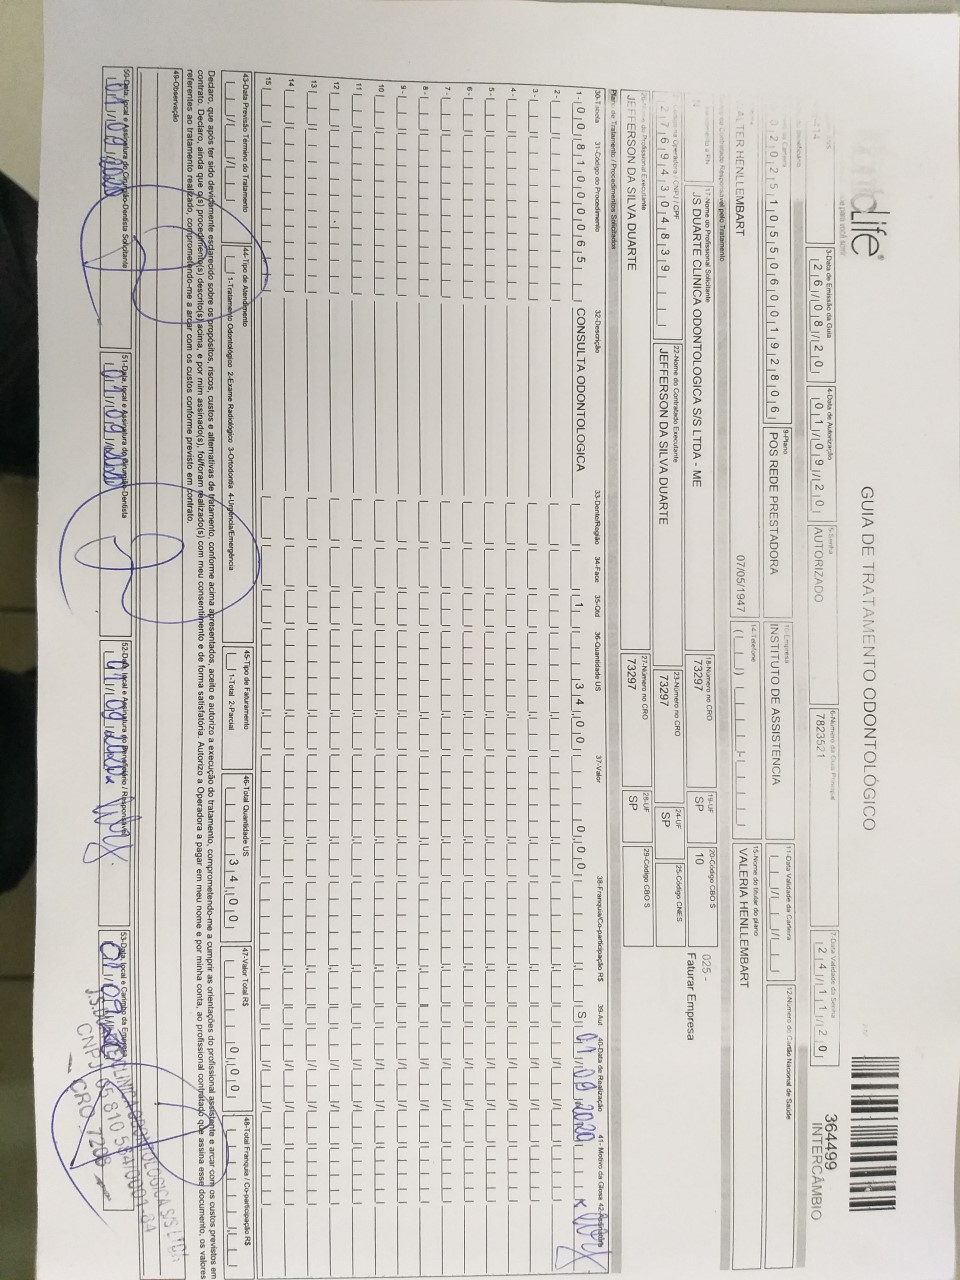 GUIA DE TRATAMENTO ODONTOLÓGICO
Life®
364499
INTERCÂMBIO
3-Data de Emissão da Guia
26/08/20
4-Data de Autorização
01/09/20
5-Senha
AUTORIZADO
6-Número da Guia Principal
7823521
7-Data Validade da Senha
24/11/20
0202510550600192806
9-Plano
POS REDE PRESTADORA
10-Empresa
INSTITUTO DE ASSISTENCIA
11-Data Validade da Carteira
12-Número do Cartão Nacional de Saúde
ALTER HENLLEMBART
07/05/1947
14-Telefone
15-Nome do titular do plano
VALERIA HENLLEMBART
17-Nome do Profissional Solicitante
J/S DUARTE CLINICA ODONTOLOGICA S/S LTDA - ME
18-Número no CRO
73297
19-UF
SP
20-Código CBO S
10
025 -
Faturar Empresa
27694304839
22-Nome do Contratado Executante
JEFFERSON DA SILVA DUARTE
23-Número no CRO
73297
24-UF
SP
25-Código CNES
JEFFERSON DA SILVA DUARTE
27-Número no CRO
73297
28-UF
SP
29-Código CBO S
Plano de Tratamento / Procedimentos Solicitados
30-Tabela 31-Código do Procedimento 32-Descrição 33-Dente/Região 34-Face 35-Qtd 36-Quantidade US 37-Valor 38-Franquia/Co-participação R$ 39-Aut 40-Data de Realização 41-Motivo da Glosa 42-Assinatura
1- 00 81000065 CONSULTA ODONTOLOGICA 1 34,00 0,00 S 01/09/2020
2-
3-
4-
5-
6-
7-
8-
9-
10
11
12
13
14
15
43-Data Previsão Término do Tratamento
44-Tipo de Atendimento
1-Tratamento Odontológico 2-Exame Radiológico 3-Ortodontia 4-Urgência/Emergência
45-Tipo de Faturamento
1-Total 2-Parcial
46-Total Quantidade US
34,00
47-Valor Total R$
0,00
48-Total Franquia / Co-participação R$
Declaro, que após ter sido devidamente esclarecido sobre os propósitos, riscos, custos e alternativas de tratamento, conforme acima apresentados, aceito e autorizo a execução do tratamento, comprometendo-me a cumprir as orientações do profissional assistente e arcar com os custos previstos em
contrato. Declaro, ainda que o(s) procedimento(s) descrito(s) acima, e por mim assinado(s), foi/foram realizado(s) com meu consentimento e de forma satisfatória. Autorizo a Operadora a pagar em meu nome e por minha conta, ao profissional contratado que assina esse documento, os valores
referentes ao tratamento realizado, comprometendo-me a arcar com os custos conforme previsto em contrato.
49-Observação
50-Data, local e Assinatura do Cirurgião-Dentista Solicitante
01/09/2020
51-Data, local e Assinatura do Cirurgião-Dentista
01/09/2020
52-Data, local e Assinatura do Beneficiário / Responsável
01/09/2020
53-Data, local e Carimbo da Empresa
01/09
J.S. DUARTE CLINICA ODONTOLOGICA S/S LTDA